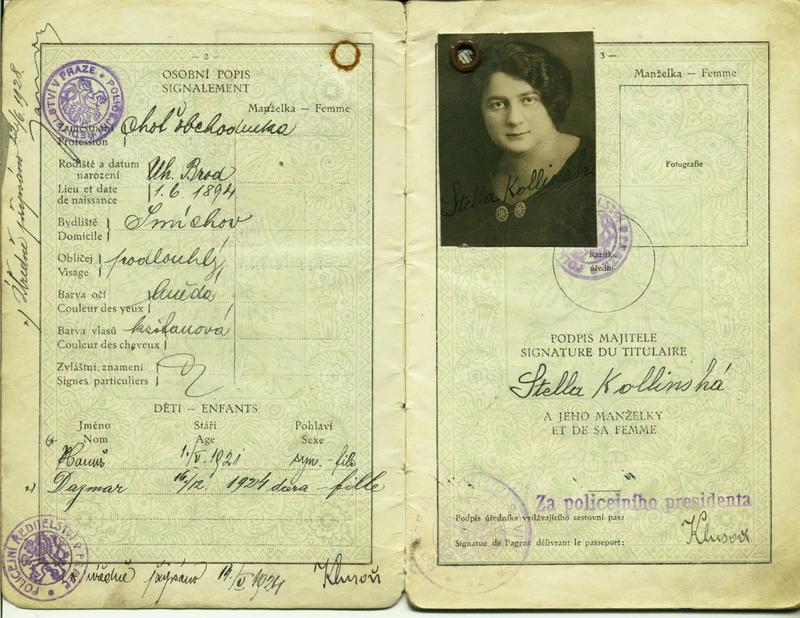 — 2 —
OSOBNÍ POPIS
SIGNALEMENT
Manželka – Femme
Zaměstnání
Profession
choť obchodníka
Rodiště a datum
narození
Lieu et date
de naissance
Uh. Brod
1. 6. 1894
Bydliště
Domicile
Smíchov
Obličej
Visage
podlouhlý
Barva očí
Couleur des yeux
hnědá
Barva vlasů
Couleur des cheveux
kaštanová
Zvláštní znamení
Signes particuliers
DĚTI – ENFANTS
Jméno Stáří Pohlaví
Nom Age Sexe
Hanuš 1./V. 1921 syn. - fils
Dagmar 1924 dcera - fille
úředně připsáno 1924 Klusoň
Úředně připsáno 1928
POLICEJNÍ ŘEDITELSTVÍ V PRAZE
POLICEJNÍ ŘEDITELSTVÍ V PRAZE
3 —
Manželka – Femme
Fotografie
Stella Kollinská
Razítko
úřední
PODPIS MAJITELE
SIGNATURE DU TITULAIRE
Stella Kollinská
A JEHO MANŽELKY
ET DE SA FEMME
Za policejního presidenta
Podpis úředníka vydávajícího cestovní pas:
Signature de l'agent délivrant le passeport:
Klusoň